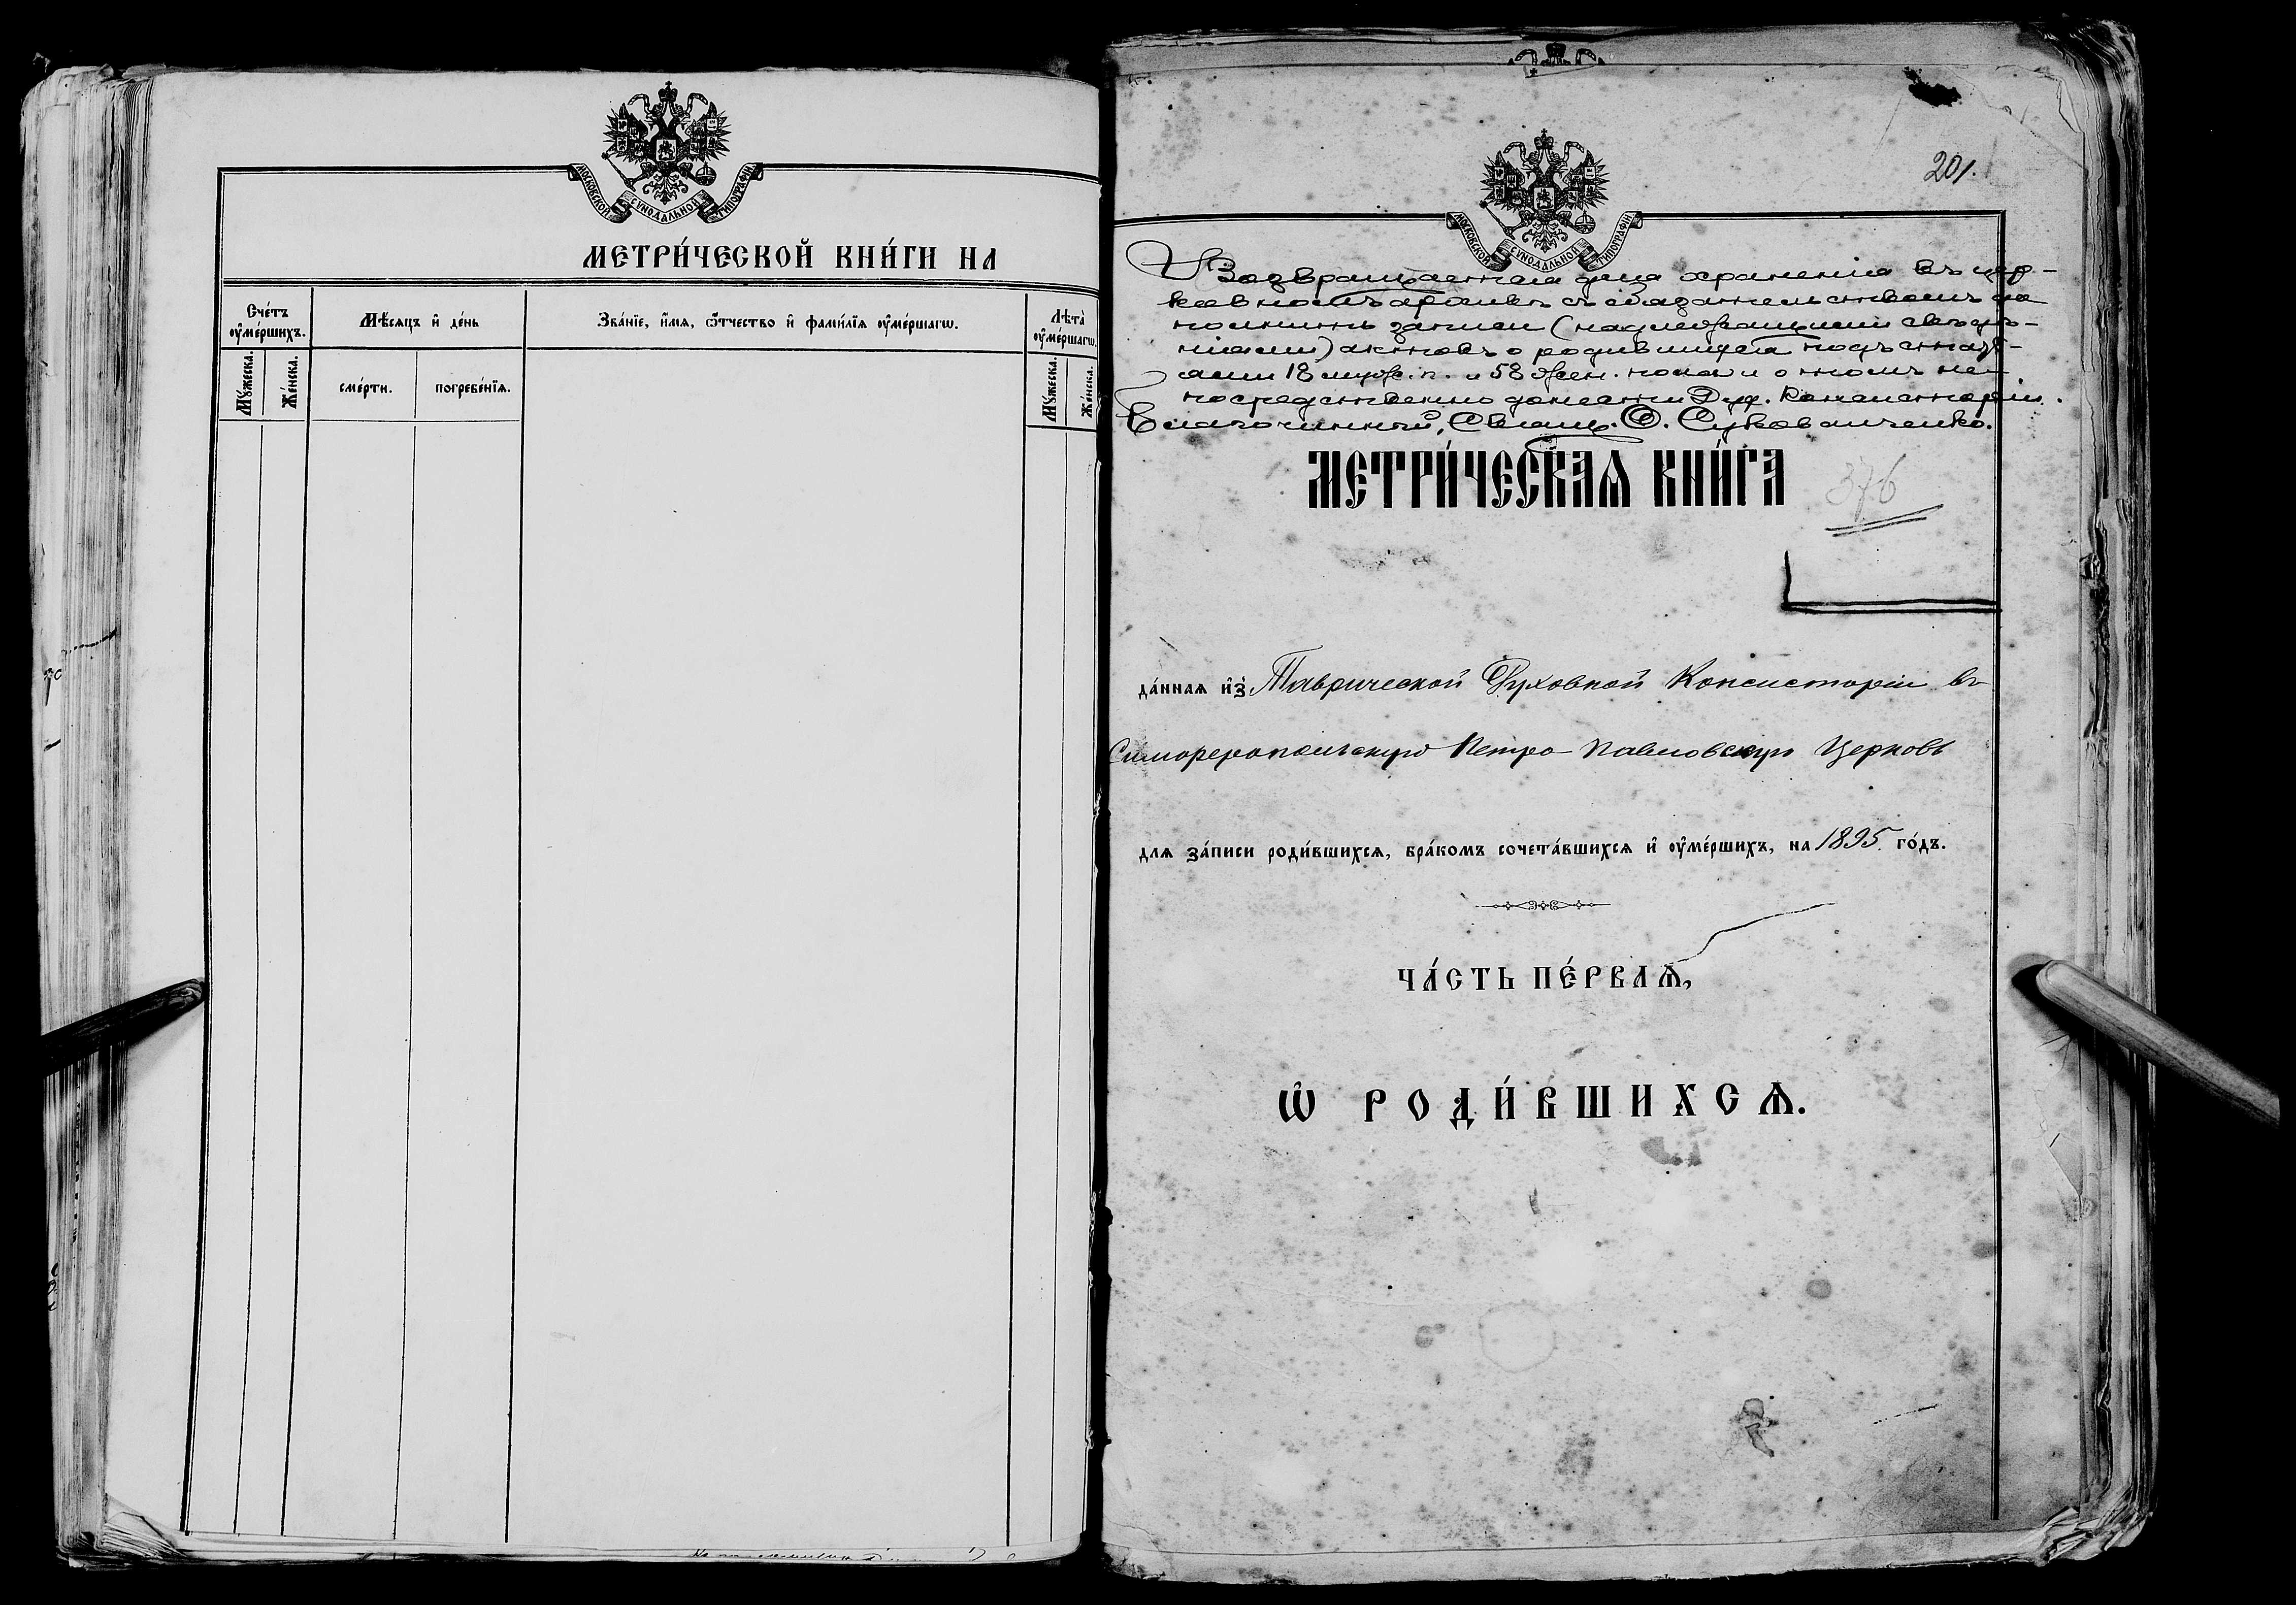 МОСКОВСКОЙ СУНОДАЛЬНОЙ ТИПОГРАФІИ
МЕТРИ́ЧЕСКОЙ КНИ́ГИ НА
Сче́тъ ᲂу҆ме́ршихъ.
Мѣ́сяцъ и҆ де́нь
Зва́нїе, и҆́мя, ѻ҆́тчество и҆ фами́лїя ᲂу҆ме́ршагѡ.
Лѣта̀ ᲂу҆ме́ршагѡ.
Мꙋ́жеска.
Же́нска.
сме́рти.
погребе́нїя.
Мꙋ́жеска.
Же́нска.
201.
МОСКОВСКОЙ СУНОДАЛЬНОЙ ТИПОГРАФІИ
Возвращенная для храненія въ цер-
ковномъ архивѣ съ обязательствомъ до
полнить записи (надлежащими свѣдѣ-
ніями) актовъ о родившихся подъ стать-
ями 18 муж. п. и 58 жен. пола и о томъ не
посредственно донести Дух. Консисторіи.
Благочинный, Свящ. Ѳ.
МЕТРИ́ЧЕСКАѦ КНИ́ГА
376
да́нная и҆з̾ Таврической Духовной Консисторіи въ
Симферопольскую Петро-Павловскую Церковь
для за́писи роди́вшихся, бра́комъ сочета́вшихся и҆ ᲂу҆ме́ршихъ, на 1895 го́дъ.
ЧА́СТЬ ПЕ́РВАѦ,
Ѡ҆ РОДИ́ВШИХСѦ.